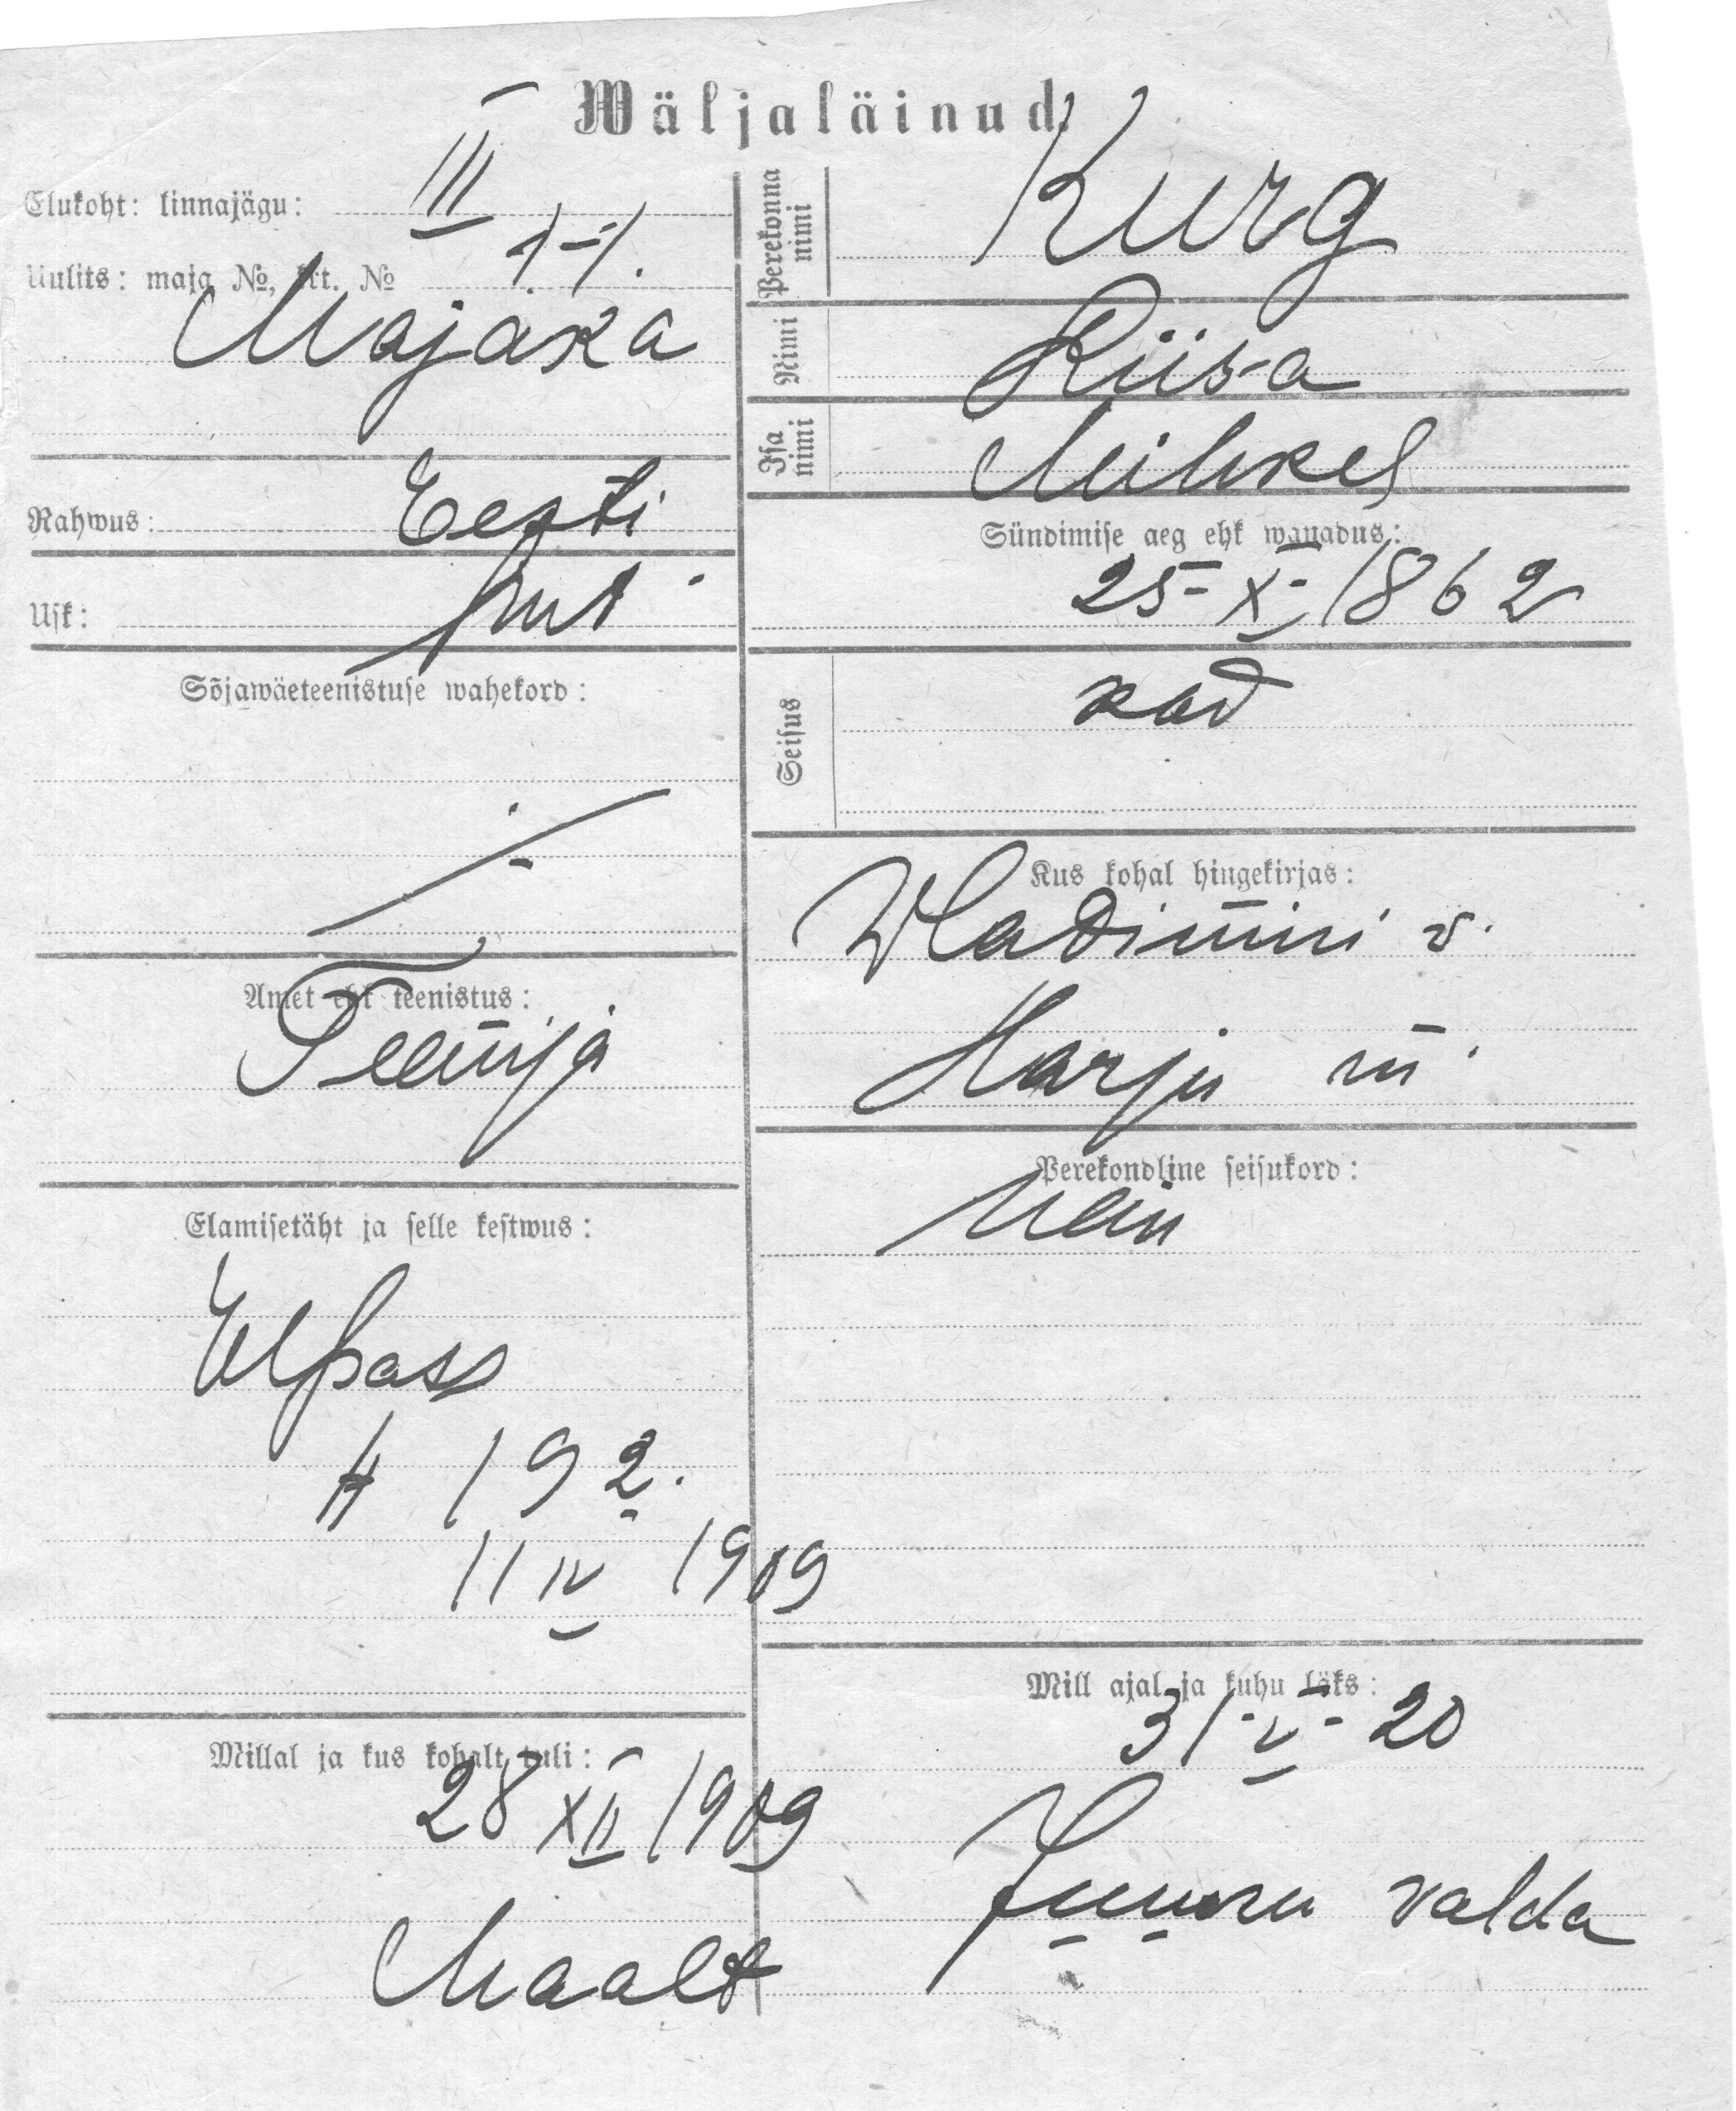 Wäljaläinud.
Elukoht: linnajägu: III
Uulits: maja №, krt. № 1-1.
Majaka
Rahwus: Eesti
Usk: lut.
Sõjawäeteenistuse wahekord:
Amet ehk teenistus:
Teenija
Elamisetäht ja selle kestwus:
Elpass
№ 192.
11 IV 1919
Millal ja kus kohalt tuli:
28 XII 1919
Maalt
Perekonna nimi Kurg
Nimi Riisa
Isa nimi Mihkel
Sündimise aeg ehk wanadus:
25-X-1862
Seisus
Kus kohal hingekirjas:
Wladimiri v.
Harju m.
Perekondline seisukord:
Mill ajal ja kuhu läks:
31-V-20
Juuru valda